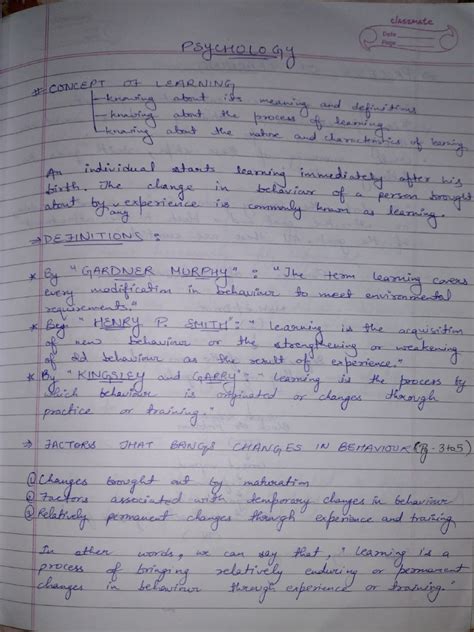 classmate
Date
Page
PSYCHOLOGY
# CONCEPT OF LEARNING
knowing about its meaning and definitions
knowing about the process of learning.
knowing about the nature and characteristics of learning
An individual starts learning immediately after his
birth. The change in behaviour of a person brought
about by experience is commonly known as learning.
any
→ DEFINITIONS :
* By "GARDNER MURPHY" : "The term learning covers
every modification in behaviour to meet environmental
requirements."
* By: "HENRY P. SMITH" : "learning is the acquisition
of new behaviour or the strengthening or weakening
of old behaviour as the result of experience."
* By "KINGSLEY and GARRY" : "learning is the process by
which behaviour is originated or changes through
practice or training."
→ FACTORS THAT BANGS CHANGES IN BEHAVIOUR (Pg. 3to5)
① Changes brought out by maturation
② Factors associated with temporary changes in behaviour
③ Relatively permanent changes through experience and training
In other words, we can say that, "learning is a
process of bringing relatively enduring or permanent
changes in behaviour through experience or training."